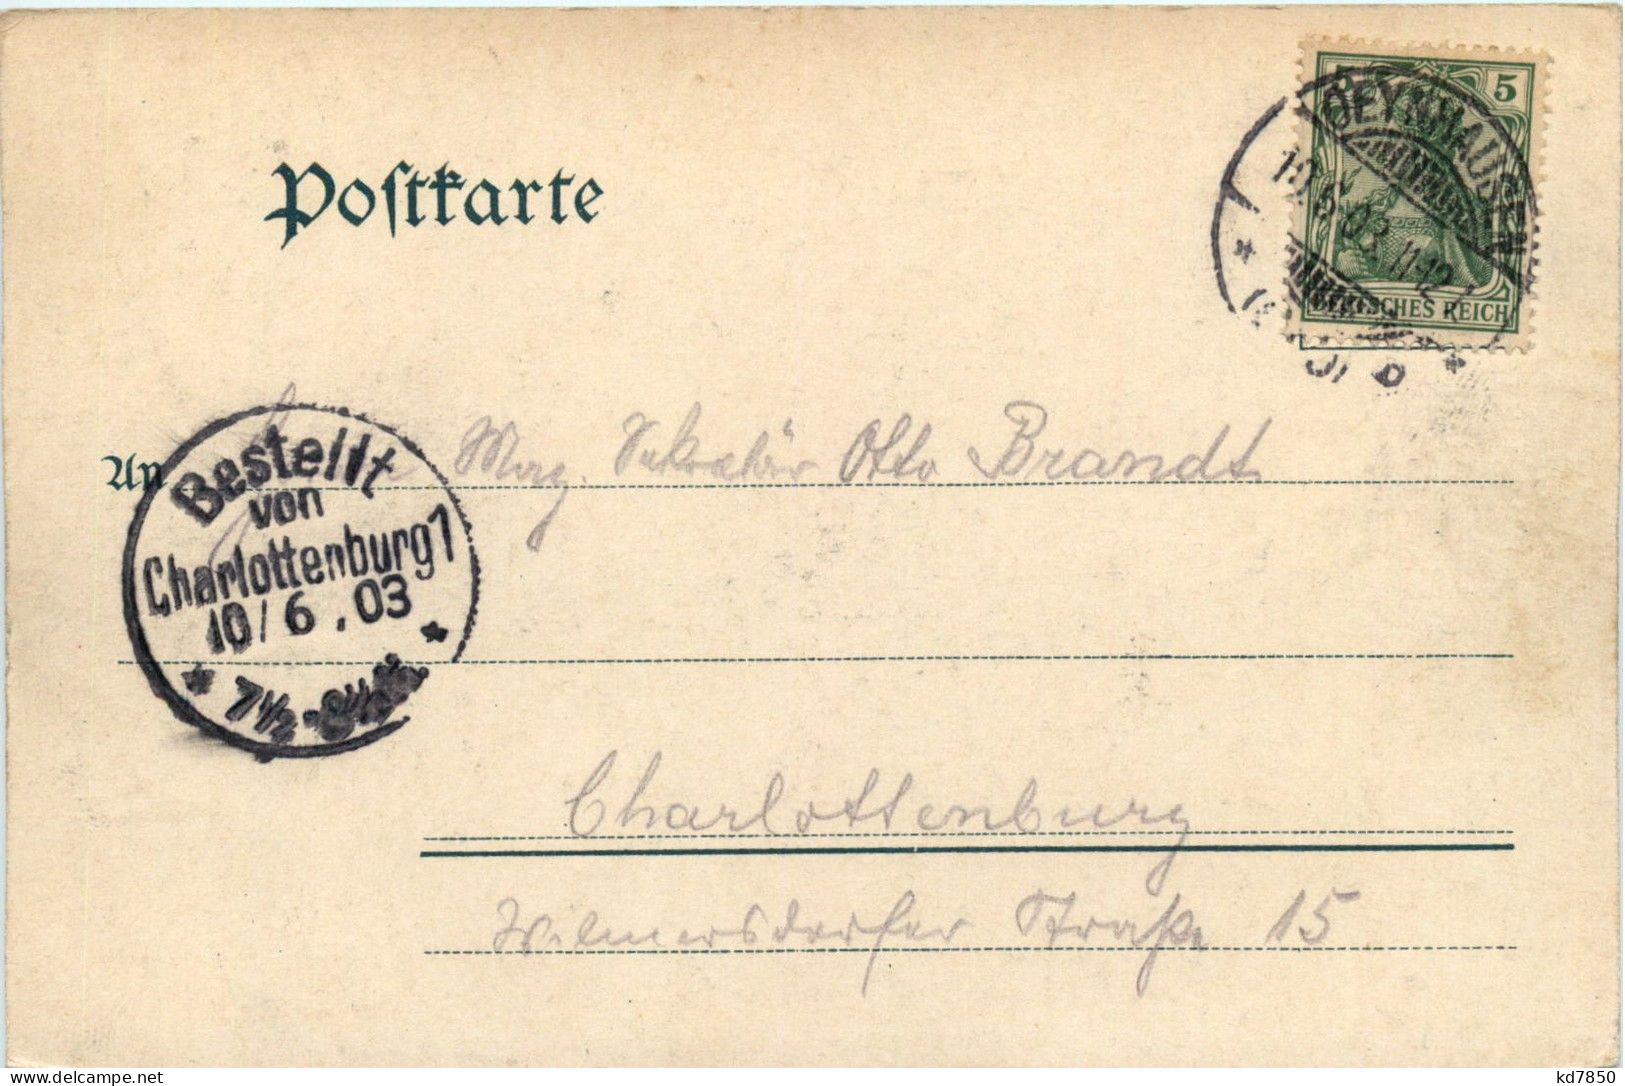 5 5
OEYNHAUSEN
10.6.03. 11-12
DEUTSCHES REICH
Postkarte
An Mag. Sekretär Otto Brandt
Bestellt
von
Charlottenburg 1
10/6.03
* 7½-8½ *
Charlottenburg
Wilmersdorfer Straße 15
kd7850